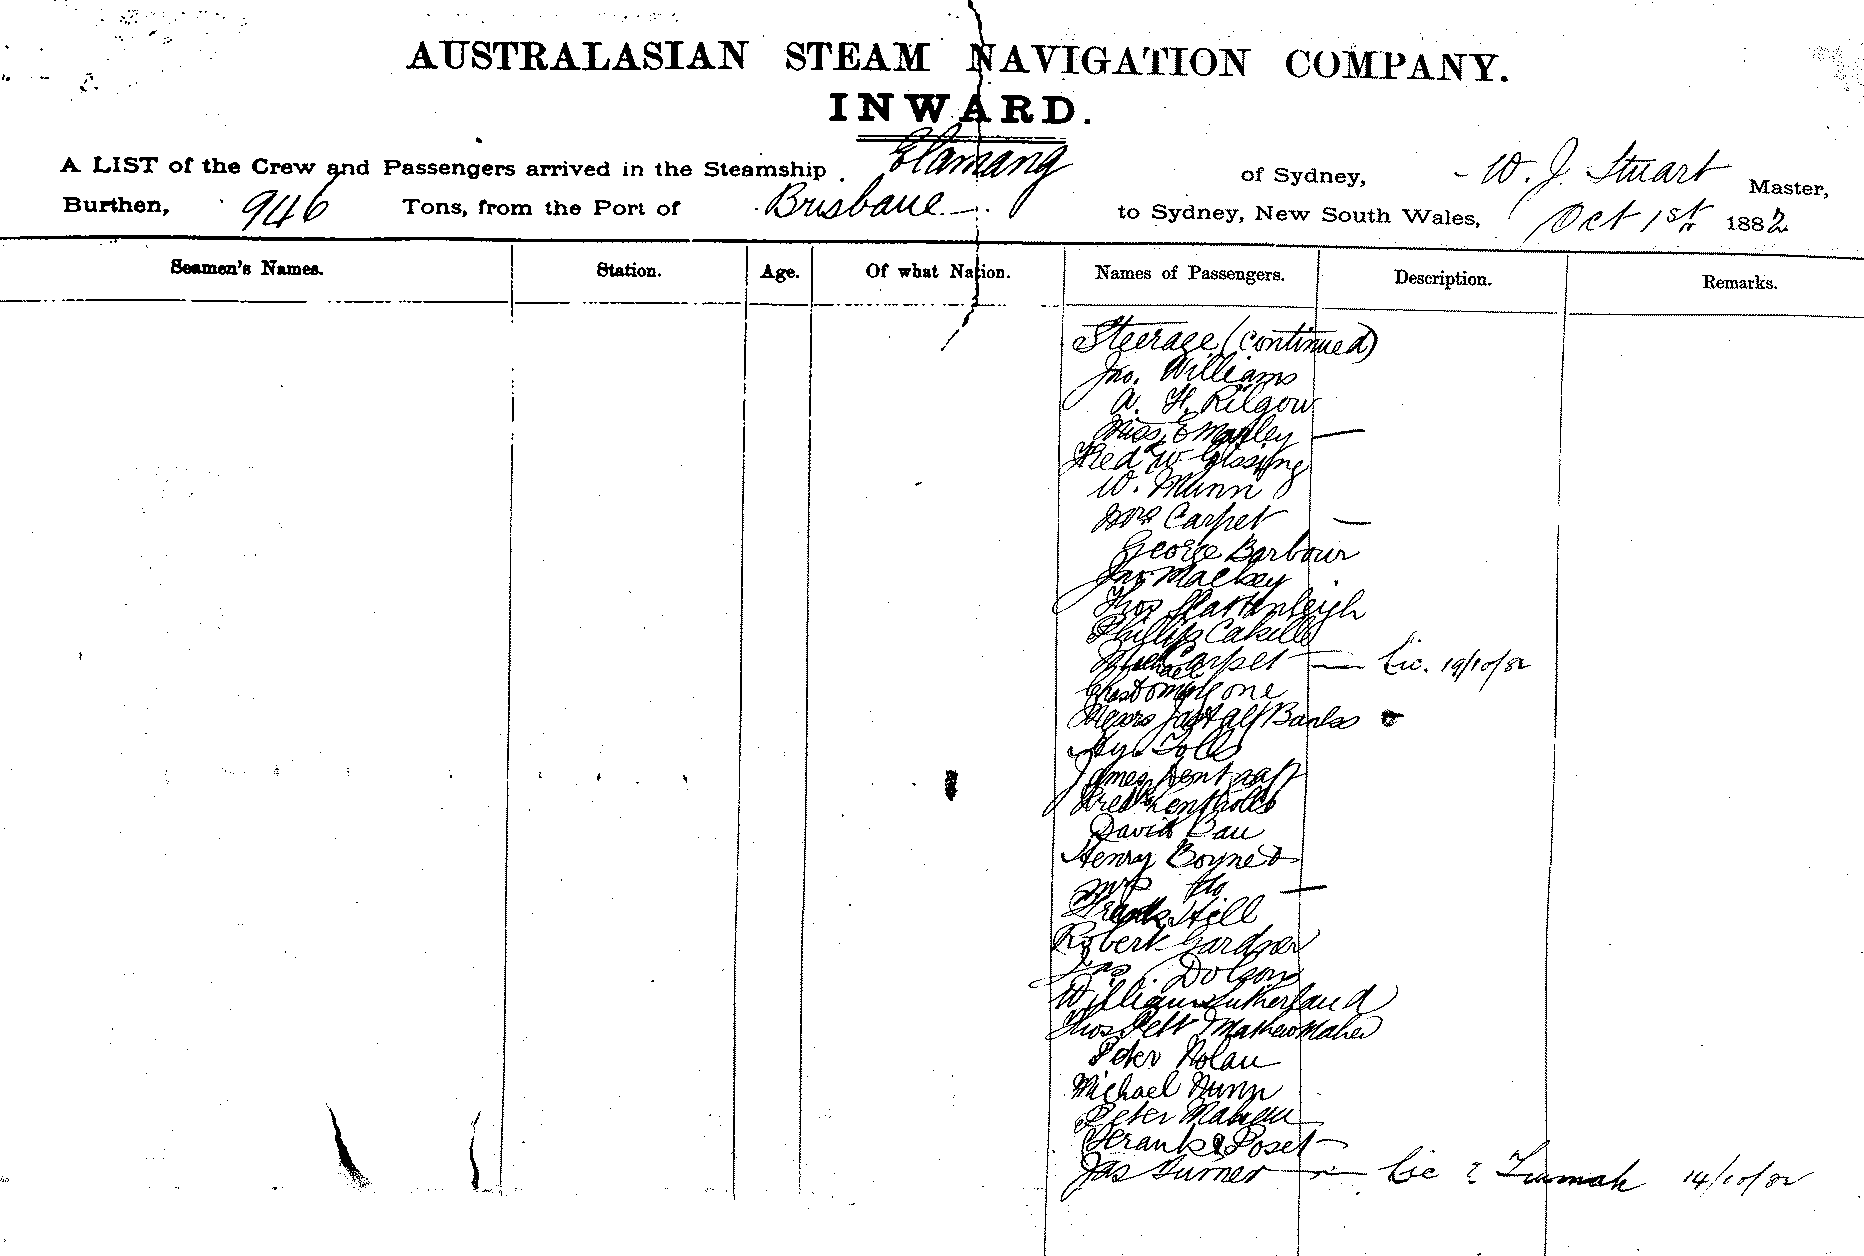 AUSTRALASIAN STEAM NAVIGATION COMPANY.
INWARD.
A LIST of the Crew and Passengers arrived in the Steamship Elamang of Sydney, W. J. Stuart Master,
Burthen, 946 Tons, from the Port of Brisbane to Sydney, New South Wales, Oct 1st 1882
Seamen's Names. Station. Age. Of what Nation. Names of Passengers. Description. Remarks.
Steerage (continued)
Jno. Williams
A. H. Kilgour
Miss E Manley —
Fred W Gissing
W. Munn
Mrs Carpet —
George Barbour
Jno Mackey
Thos
Phillip Cahill
Michael Carpet — Lic. 19/10/82
Chas
Messrs Jas & Alf Banks
Hy.
James
Fred
David Bau
Henry Boyne
Mrs do —
Frank Hill
Robert Gardner
Jno. Dolson
William Sutherland
Thos Pett Mathew Maher
Peter Nolan
Michael Nunn
Peter
Frank Poset
Jas Turner — Lic 14/10/82